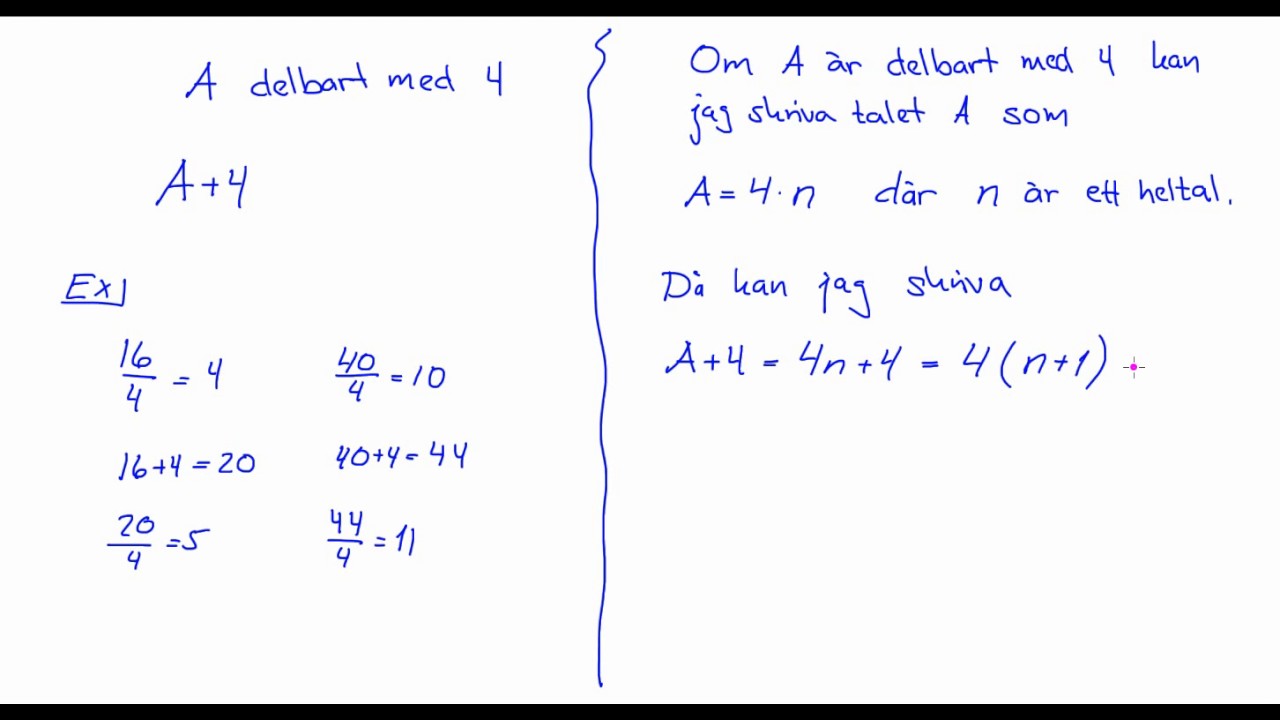 A delbart med 4
A+4
Ex
16/4 = 4
40/4 = 10
16+4 = 20
40+4 = 44
20/4 = 5
44/4 = 11
Om A är delbart med 4 kan
jag skriva talet A som
A = 4·n där n är ett heltal.
Då kan jag skriva
A+4 = 4n+4 = 4(n+1)